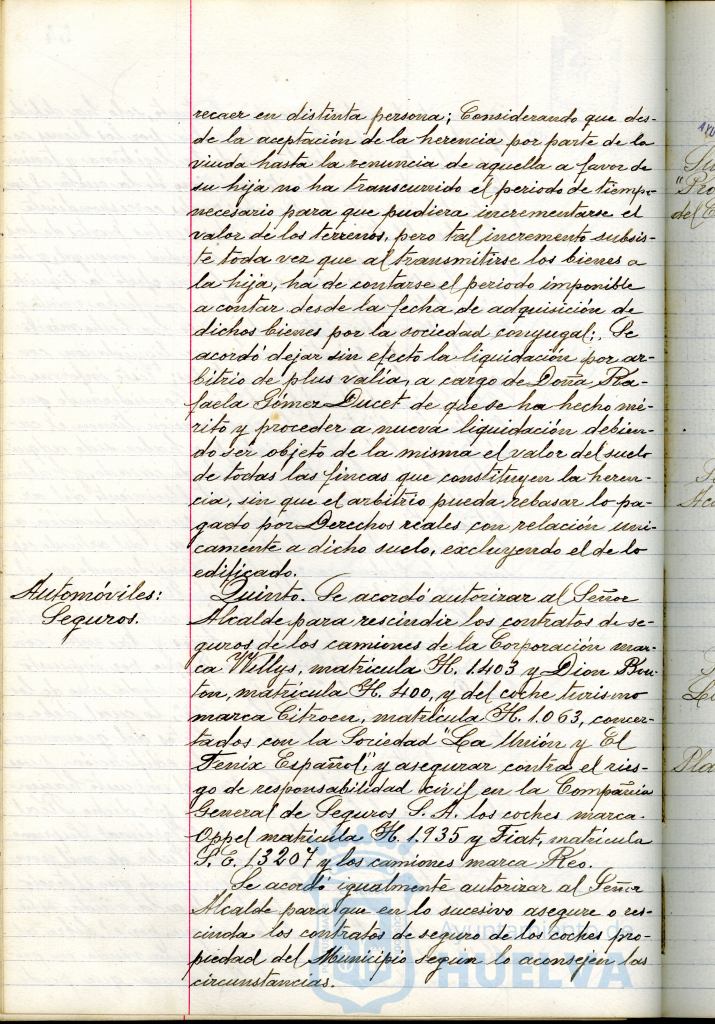 recaer en distinta persona; Considerando que des-
de la aceptación de la herencia por parte de la
viuda hasta la renuncia de aquella a favor de
su hija no ha transcurrido el periodo de tiempo
necesario para que pudiera incrementarse el
valor de los terrenos, pero tal incremento subsis-
te toda vez que al transmitirse los bienes a
la hija, ha de contarse el periodo imponible
a contar desde la fecha de adquisición de
dichos bienes por la sociedad conyugal; Se
acordó dejar sin efecto la liquidación por ar-
bitrio de plus valía, a cargo de Doña Ra-
faela Gómez Ducet de que se ha hecho mé-
rito y proceder a nueva liquidación debien-
do ser objeto de la misma el valor del suelo
de todas las fincas que constituyen la heren-
cia, sin que el arbitrio pueda rebasar lo pa-
gado por Derechos reales con relación uni-
camente a dicho suelo, excluyendo el de lo
edificado.
Automóviles:
Seguros.
Quinto. Se acordó autorizar al Señor
Alcalde para rescindir los contratos de se-
guros de los camiones de la Corporación mar-
ca Willys, matrícula H. 1.403 y Dion Bou-
ton, matrícula H. 400, y del coche turismo
marca Citroen, matrícula H. 1.063, concer-
tados con la Sociedad "La Unión y El
Fenix Español", y asegurar contra el ries-
go de responsabilidad civil en la Compañia
General de Seguros S. A. los coches marca
Oppel matrícula H. 1.935 y Fiat, matrícula
S. E. 13207 y los camiones marca Reo.
Se acordó igualmente autorizar al Señor
Alcalde para que en lo sucesivo asegure o res-
cinda los contratos de seguro de los coches pro-
piedad del Municipio según lo aconsejen las
circunstancias.
Ayuntamiento de
HUELVA